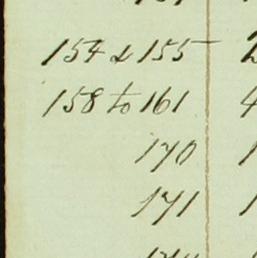 154 & 155 2
158 to 161 4
170 1
171 1